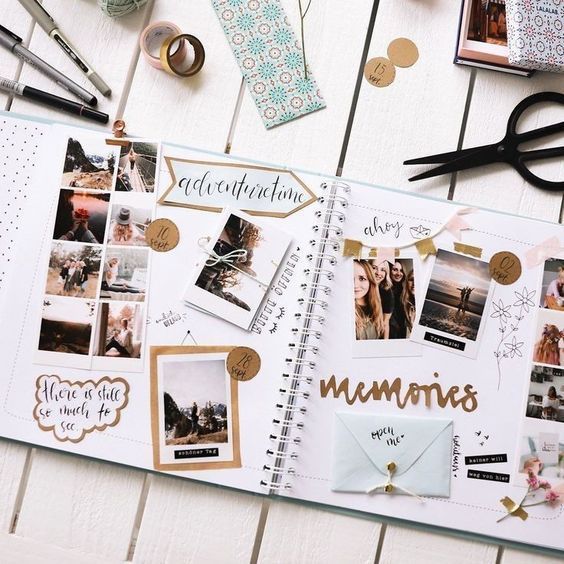 LALALAB.
15
sept
adventuretime
10
sept
BITTE ÖFFNEN
there is still
so much to
see
28
sept
schöner Tag
ahoy
02
sept
Traumziel
memories
open
me
keiner will
weg von hier